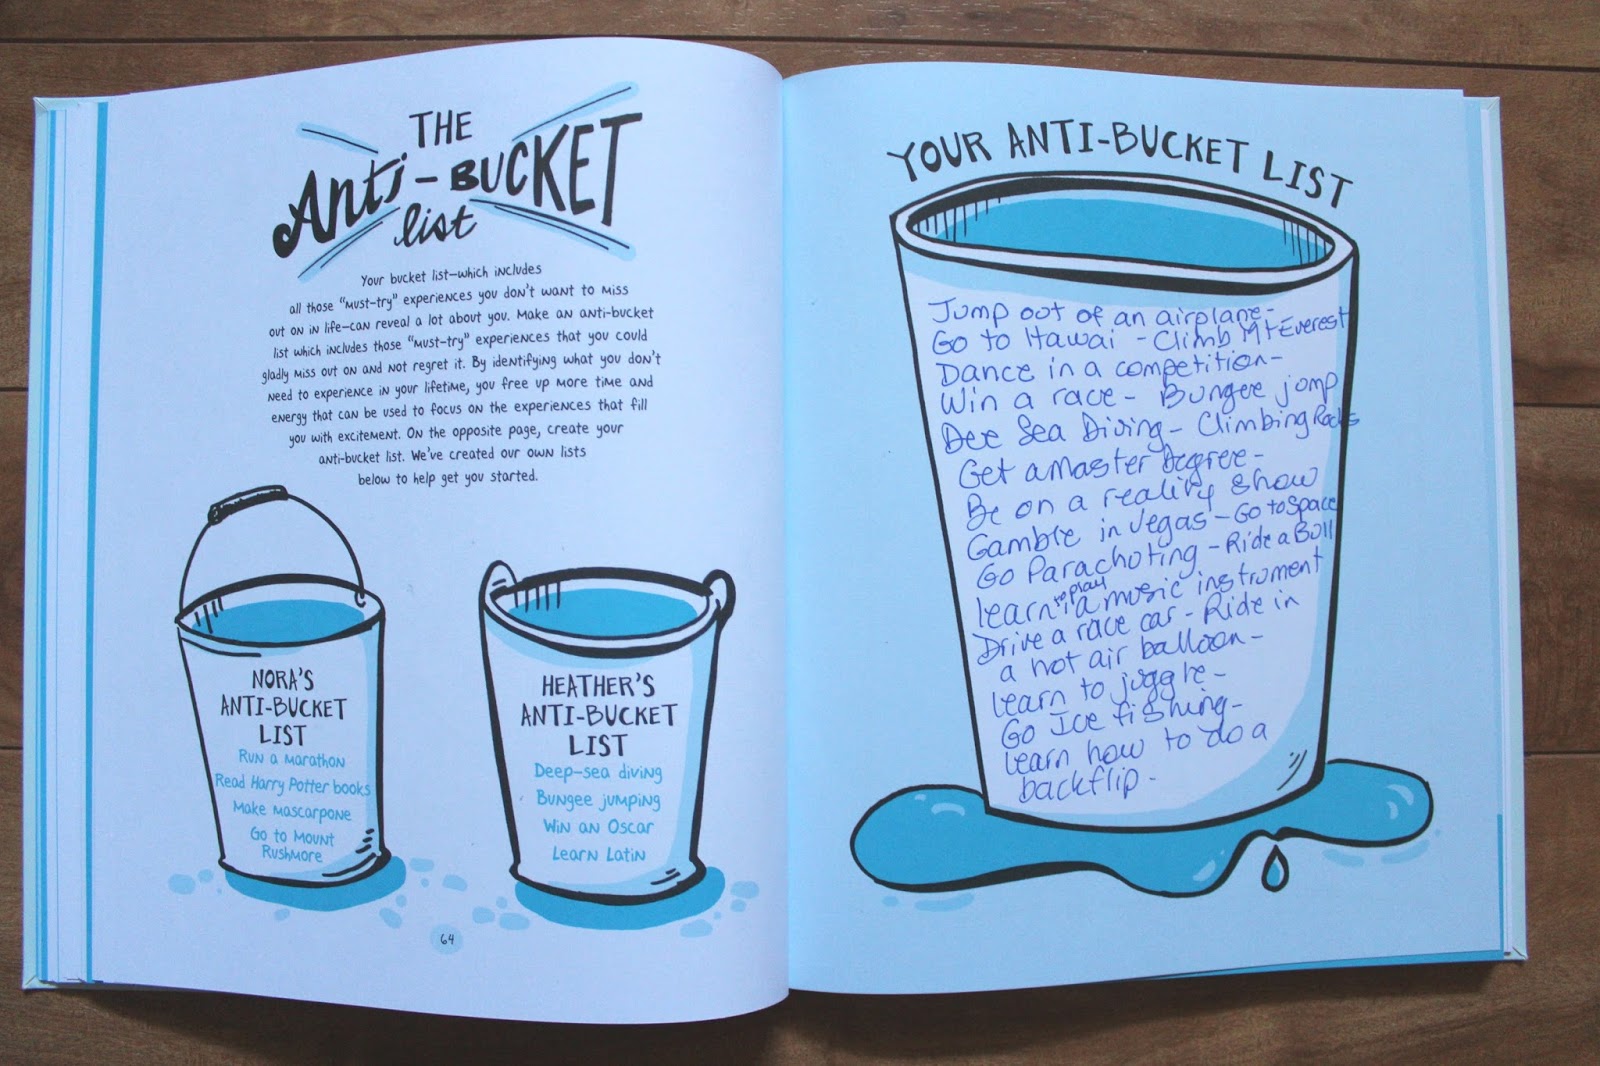 THE
Anti-BUCKET
list
Your bucket list—which includes
all those "must-try" experiences you don't want to miss
out on in life—can reveal a lot about you. Make an anti-bucket
list which includes those "must-try" experiences that you could
gladly miss out on and not regret it. By identifying what you don't
need to experience in your lifetime, you free up more time and
energy that can be used to focus on the experiences that fill
you with excitement. On the opposite page, create your
anti-bucket list. We've created our own lists
below to help get you started.
NORA'S
ANTI-BUCKET
LIST
Run a marathon
Read Harry Potter books
Make mascarpone
Go to Mount
Rushmore
HEATHER'S
ANTI-BUCKET
LIST
Deep-sea diving
Bungee jumping
Win an Oscar
Learn Latin
64
YOUR ANTI-BUCKET LIST
Jump out of an airplane-
Go to Hawai - Climb Mt Everest
Dance in a competition-
Win a race - Bungee jump
Dee Sea Diving - Climbing Rocks
Get a Master Degree -
Be on a reality show
Gamble in Vegas - Go to Space
Go Parachuting - Ride a Bull
learn to play a music instrument
Drive a race car - Ride in
a hot air balloon -
learn to juggle -
Go Ice fishing -
learn how to do a
backflip -